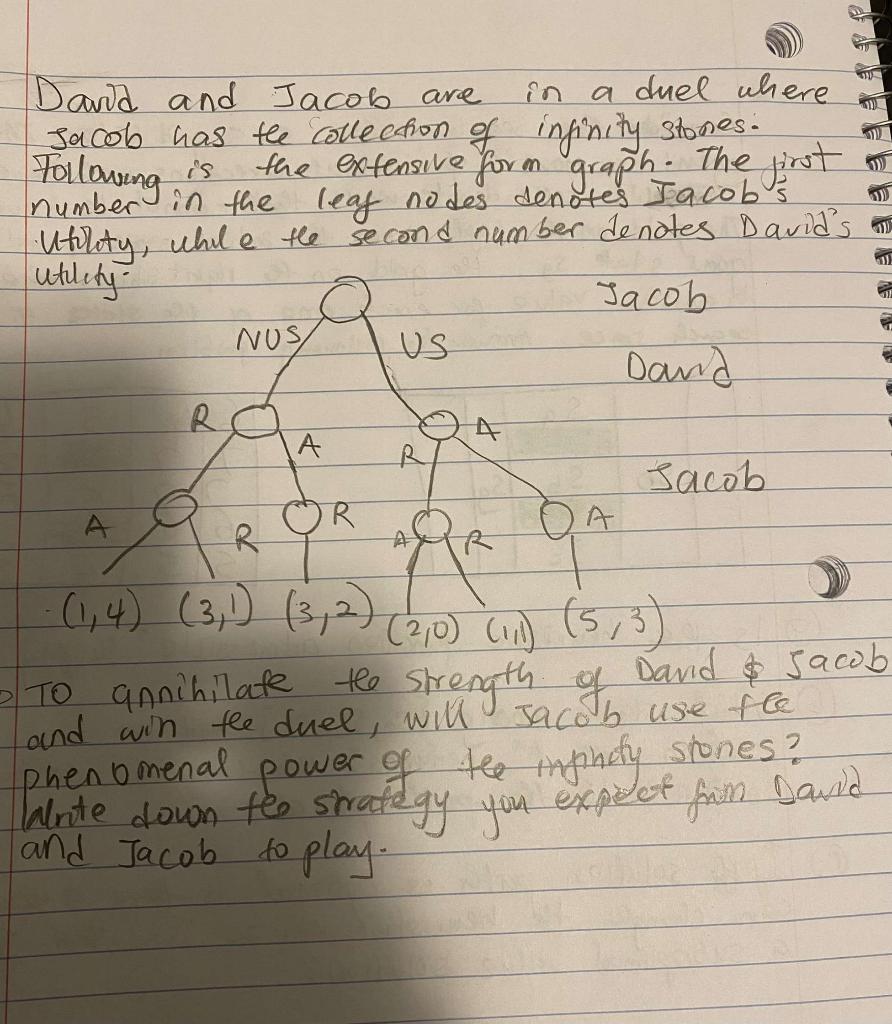 David and Jacob are in a duel where
Jacob has the collection of infinity stones.
Following is the extensive form graph. The first
number in the leaf nodes denotes Jacob's
Utility, while the second number denotes David's
utility.
Jacob
NUS US
David
R A R A
Jacob
A R R A R A
(1,4) (3,1) (3,2) (2,0) (1,1) (5,3)
To annihilate the strength of David & Jacob
and win the duel, will Jacob use the
phenomenal power of the infinity stones?
Write down the strategy you expect from David
and Jacob to play.